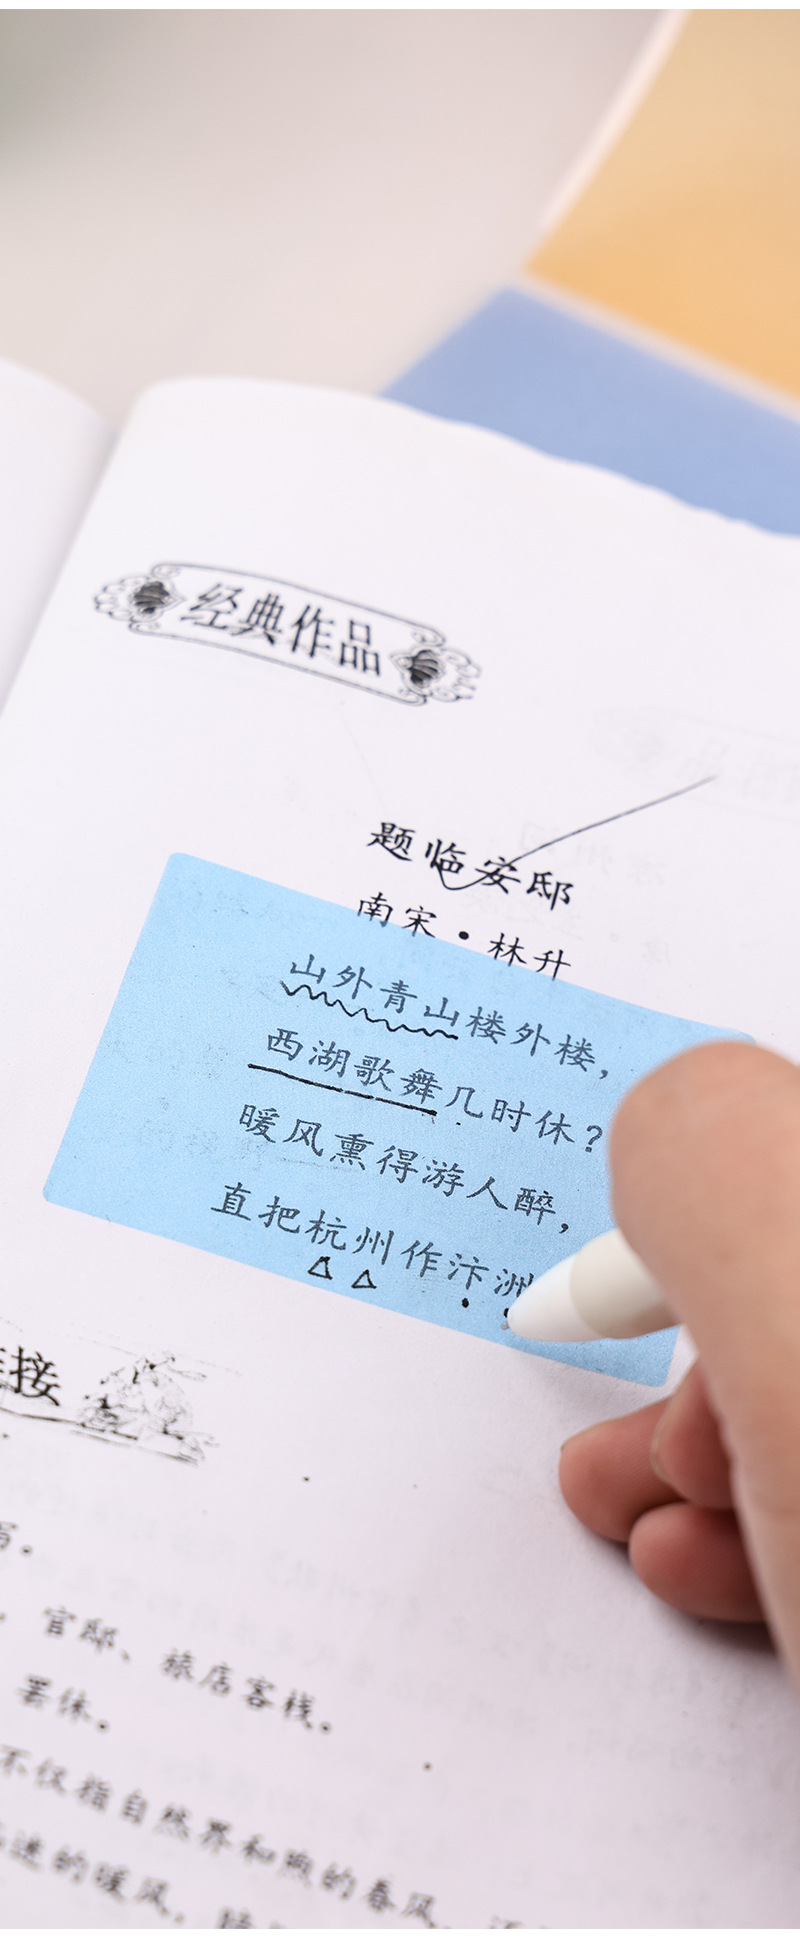 经典作品
题临安邸
南宋·林升
山外青山楼外楼，
西湖歌舞几时休？
暖风熏得游人醉，
直把杭州作汴洲
接
写。
官邸、旅店客栈。
罢休。
不仅指自然界和煦的春风，
进的暖风，